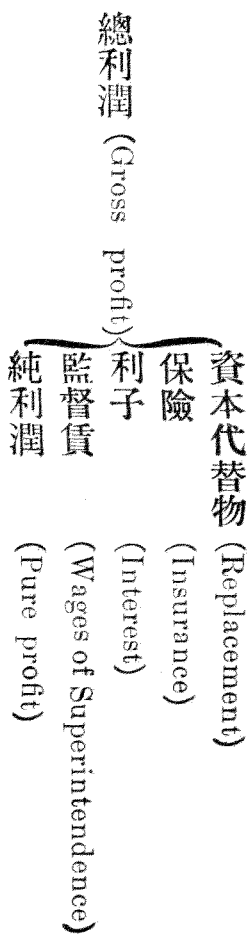 總利潤 (Gross profit)
資本代替物 (Replacement)
保險 (Insurance)
利子 (Interest)
監督賃 (Wages of Superintendence)
純利潤 (Pure profit)